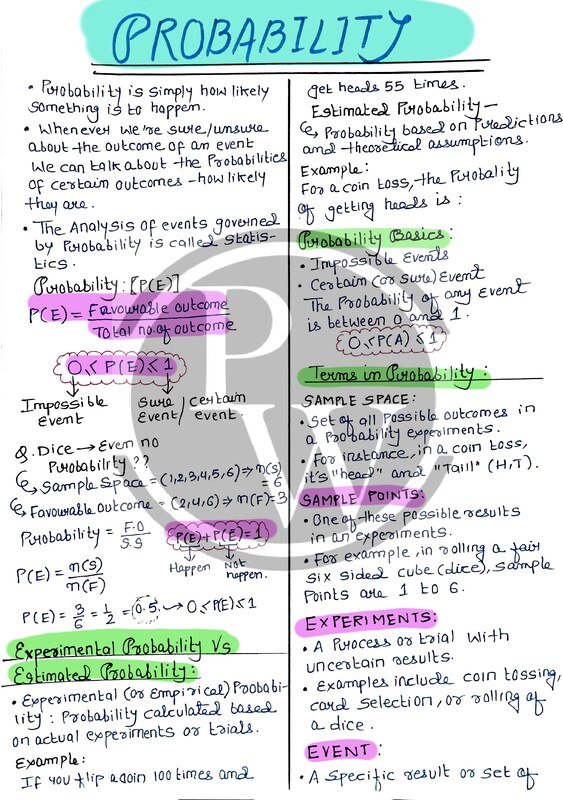 PROBABILITY
• Probability is simply how likely
something is to happen.
• Whenever we're sure/unsure
about the outcome of an event
we can talk about the Probabilities
of certain outcomes - how likely
they are.
• The Analysis of events governed
by Probability is called statis-
tics.
Probability: [P(E)]
P(E) = Favourable outcome
Total no. of outcome
0 ≤ P(E) ≤ 1
Impossible Event
Sure / certain
Event / event.
Q. Dice → Even no
Probability ??
↳ Sample Space = (1,2,3,4,5,6) ⇒ n(S) = 6
↳ Favourable outcome = (2,4,6) ⇒ n(F) = 3
Probability = F.O / S.S
P(E) + P(E) = 1
Happen Not happen.
P(E) = n(S) / n(F)
P(E) = 3/6 = 1/2 = 0.5. → 0 ≤ P(E) ≤ 1
Experimental Probability Vs
Estimated Probability:
• Experimental (or Empirical) Probabi-
lity: Probability calculated based
on actual experiments or trials.
Example:
If you flip a coin 100 times and
get heads 55 times.
Estimated Probability -
↳ Probability based on Predictions
and theoretical assumptions.
Example:
For a coin toss, the Probality
of getting heads is:
Probability Basics:
• Impossible Events
• Certain (or sure) Event
The Probability of any event
is between 0 and 1.
0 ≤ P(A) ≤ 1
Terms in Probability:
SAMPLE SPACE:
• Set of all possible outcomes in
a Probability experiments.
• For instance, in a coin toss,
it's "head" and "Taill" (H,T).
SAMPLE POINTS:
• One of these possible results
in an experiments.
• For example, in rolling a fair
six sided cube (dice), Sample
Points are 1 to 6.
EXPERIMENTS:
• A Process or trial with
uncertain results.
• Examples include coin tossing,
card selection, or rolling of
a dice.
EVENT:
• A specific result or set of
PW